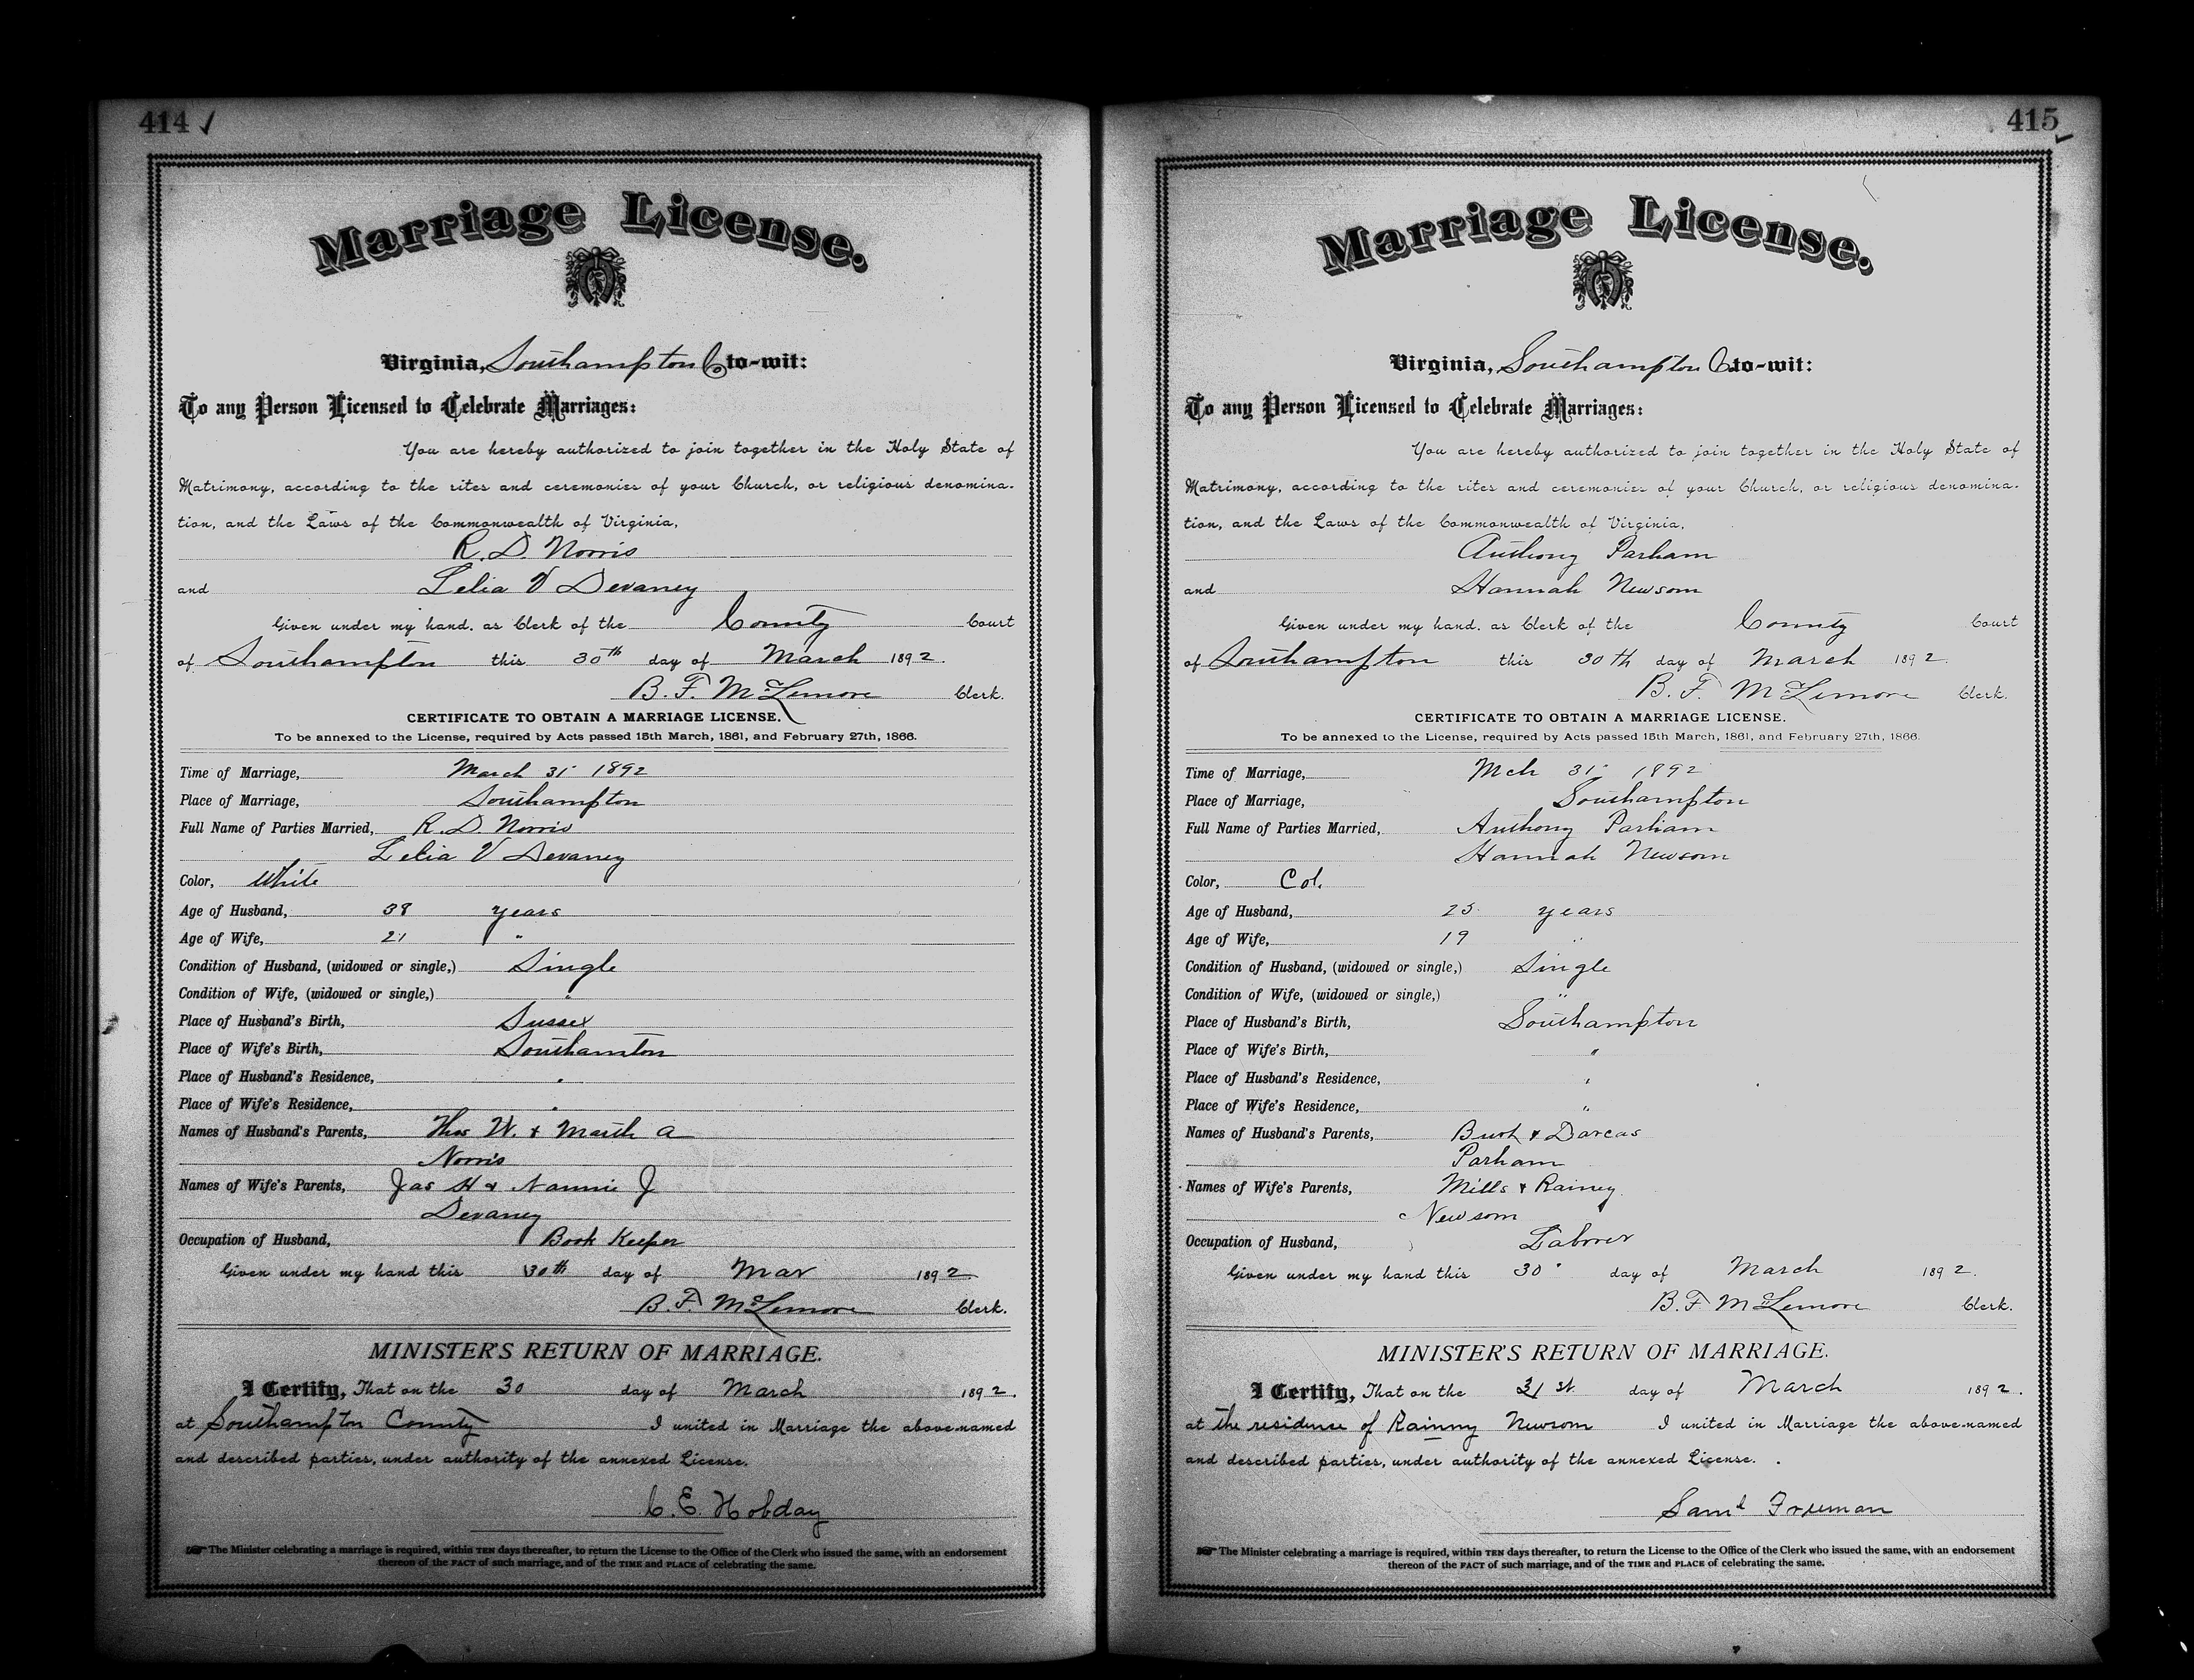 414
Marriage License.
Virginia, Southampton Co to-wit:
To any Person Licensed to Celebrate Marriages:
You are hereby authorized to join together in the Holy State of
Matrimony, according to the rites and ceremonies of your Church, or religious denomina-
tion, and the Laws of the Commonwealth of Virginia,
R. D. Norris
and Lelia V Devaney
Given under my hand, as Clerk of the County Court
of Southampton this 30th day of March 1892.
B. F. McLemore Clerk.
CERTIFICATE TO OBTAIN A MARRIAGE LICENSE.
To be annexed to the License, required by Acts passed 15th March, 1861, and February 27th, 1866.
Time of Marriage, March 31 1892
Place of Marriage, Southampton
Full Name of Parties Married, R. D. Norris
Lelia V Devaney
Color, White
Age of Husband, 38 years
Age of Wife, 21 "
Condition of Husband, (widowed or single,) Single
Condition of Wife, (widowed or single,) "
Place of Husband's Birth, Sussex
Place of Wife's Birth, Southamton
Place of Husband's Residence, "
Place of Wife's Residence, "
Names of Husband's Parents, Thos W. & Marth A
Norris
Names of Wife's Parents, Jas H & Nannie J
Devaney
Occupation of Husband, Book Keeper
Given under my hand this 30th day of Mar 1892
B. F. McLemore Clerk.
MINISTER'S RETURN OF MARRIAGE.
I Certify, That on the 30 day of March 1892.
at Southampton County I united in Marriage the above-named
and described parties, under authority of the annexed License.
C. E. Hobday
The Minister celebrating a marriage is required, within TEN days thereafter, to return the License to the Office of the Clerk who issued the same, with an endorsement
thereon of the FACT of such marriage, and of the TIME and PLACE of celebrating the same.
415
Marriage License.
Virginia, Southampton Co to-wit:
To any Person Licensed to Celebrate Marriages:
You are hereby authorized to join together in the Holy State of
Matrimony, according to the rites and ceremonies of your Church, or religious denomina-
tion, and the Laws of the Commonwealth of Virginia,
Anthony Parham
and Hannah Newsom
Given under my hand, as Clerk of the County Court
of Southampton this 30th day of March 1892.
B. F. McLemore Clerk.
CERTIFICATE TO OBTAIN A MARRIAGE LICENSE.
To be annexed to the License, required by Acts passed 15th March, 1861, and February 27th, 1866.
Time of Marriage, Mch 31 1892
Place of Marriage, Southampton
Full Name of Parties Married, Anthony Parham
Hannah Newsom
Color, Col.
Age of Husband, 23 years
Age of Wife, 19 "
Condition of Husband, (widowed or single,) Single
Condition of Wife, (widowed or single,) "
Place of Husband's Birth, Southampton
Place of Wife's Birth, "
Place of Husband's Residence, "
Place of Wife's Residence, "
Names of Husband's Parents, & Darcas
Parham
Names of Wife's Parents, Mills & Rainey
Newsom
Occupation of Husband, Laborer
Given under my hand this 30 day of March 1892.
B. F McLemore Clerk.
MINISTER'S RETURN OF MARRIAGE.
I Certify, That on the 31st day of March 1892.
at the residence of Rainny Newsom I united in Marriage the above-named
and described parties, under authority of the annexed License.
Saml Freeman
The Minister celebrating a marriage is required, within TEN days thereafter, to return the License to the Office of the Clerk who issued the same, with an endorsement
thereon of the FACT of such marriage, and of the TIME and PLACE of celebrating the same.